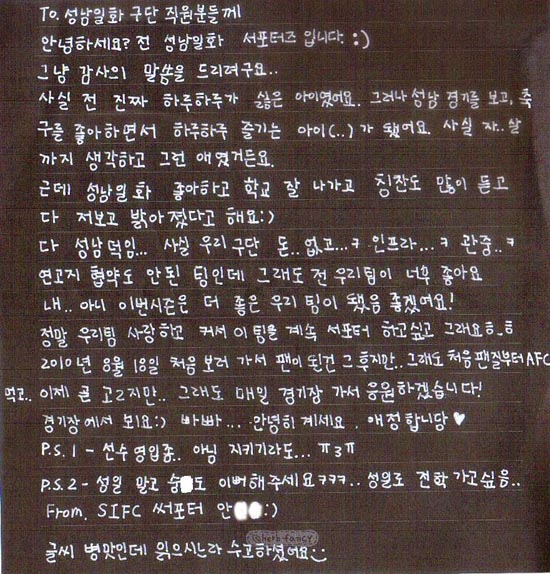 To. 성남일화 구단 직원분들께
안녕하세요? 전 성남일화 서포터즈 입니다. :)
그냥 감사의 말씀을 드리려구요..
사실 전 진짜 하루하루가 싫은 아이였어요. 그러나 성남 경기를 보고, 축
구를 좋아하면서 하루하루 즐기는 아이(..)가 됐어요. 사실 자..살
까지 생각하고 그런 애였거든요.
근데 성남일화 좋아하고 학교 잘 나가고 칭찬도 많이 듣고
다 저보고 밝아졌다고 해요:)
다 성남덕임... 사실 우리구단 돈..없고...ㅋ 인프라...ㅋ 관중..ㅋ
연고지 협약도 안된 팀인데 그래도 전 우리팀이 너무 좋아요
내.. 아니 이번시즌은 더 좋은 우리팀이 됐음 좋겠어요!
정말 우리팀 사랑하고 커서 이 팀을 계속 서포터 하고싶고 그래요ㅎ_ㅎ
2010년 8월 18일 처음 보러 가서 팬이 된건 그후지만.. 그래도 처음 팬질부터 AFC
먹고.. 이제 곧 고2지만.. 그래도 매일 경기장 가서 응원하겠습니다!
경기장에서 뵈요:) 바빠... 안녕히 계세요. 애정합니당♥
P.S. 1 - 선수영입좀.. 아님 지키기라도... ㅠ3ㅠ
P.S. 2 - 성일 말고 숭 도 이뻐해주세요ㅋㅋㅋ.. 성일로 전학 가고싶음..
From. SIFC 써포터 안 :)
icherb-fancy
글씨 병맛인데 읽으시느라 수고하셨어요